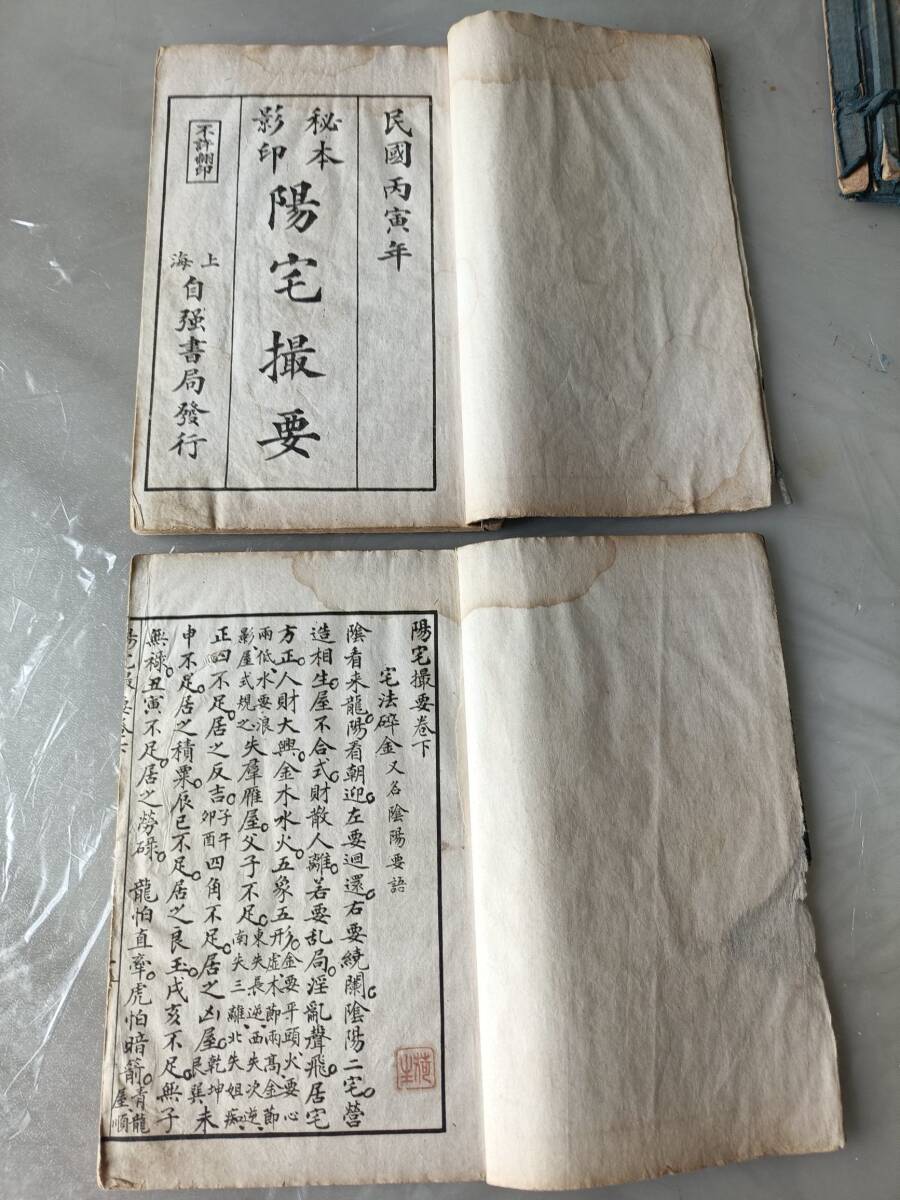 民國丙寅年
秘本
影印
陽宅撮要
上海
自强書局發行
不許翻印
陽宅撮要卷下
宅法碎金又名陰陽要語
陰看来龍。陽看朝迎。左要迴還。右要繞闌。陰陽二宅。營
造相生。屋不合式。財散人離。若要乱局。淫亂聲飛。居宅
方正。人財大興。金木水火。五象五形。金要平頭。火要心
兩低、水要浪、開、虚木節兩高、金節
影、屋式規之。失羣雁屋。父子不足。東失長逆、西失次逆、
南失三離、北失姐痴、
正四不足。居之反吉。子午卯酉四角不足。居之凶屋。乾坤艮巽未
申不足。居之積粟。辰巳不足。居之良玉。戌亥不足。無子
無祿。丑寅不足。居之勞碌。龍怕直牽。虎怕暗箭。青龍
屋順